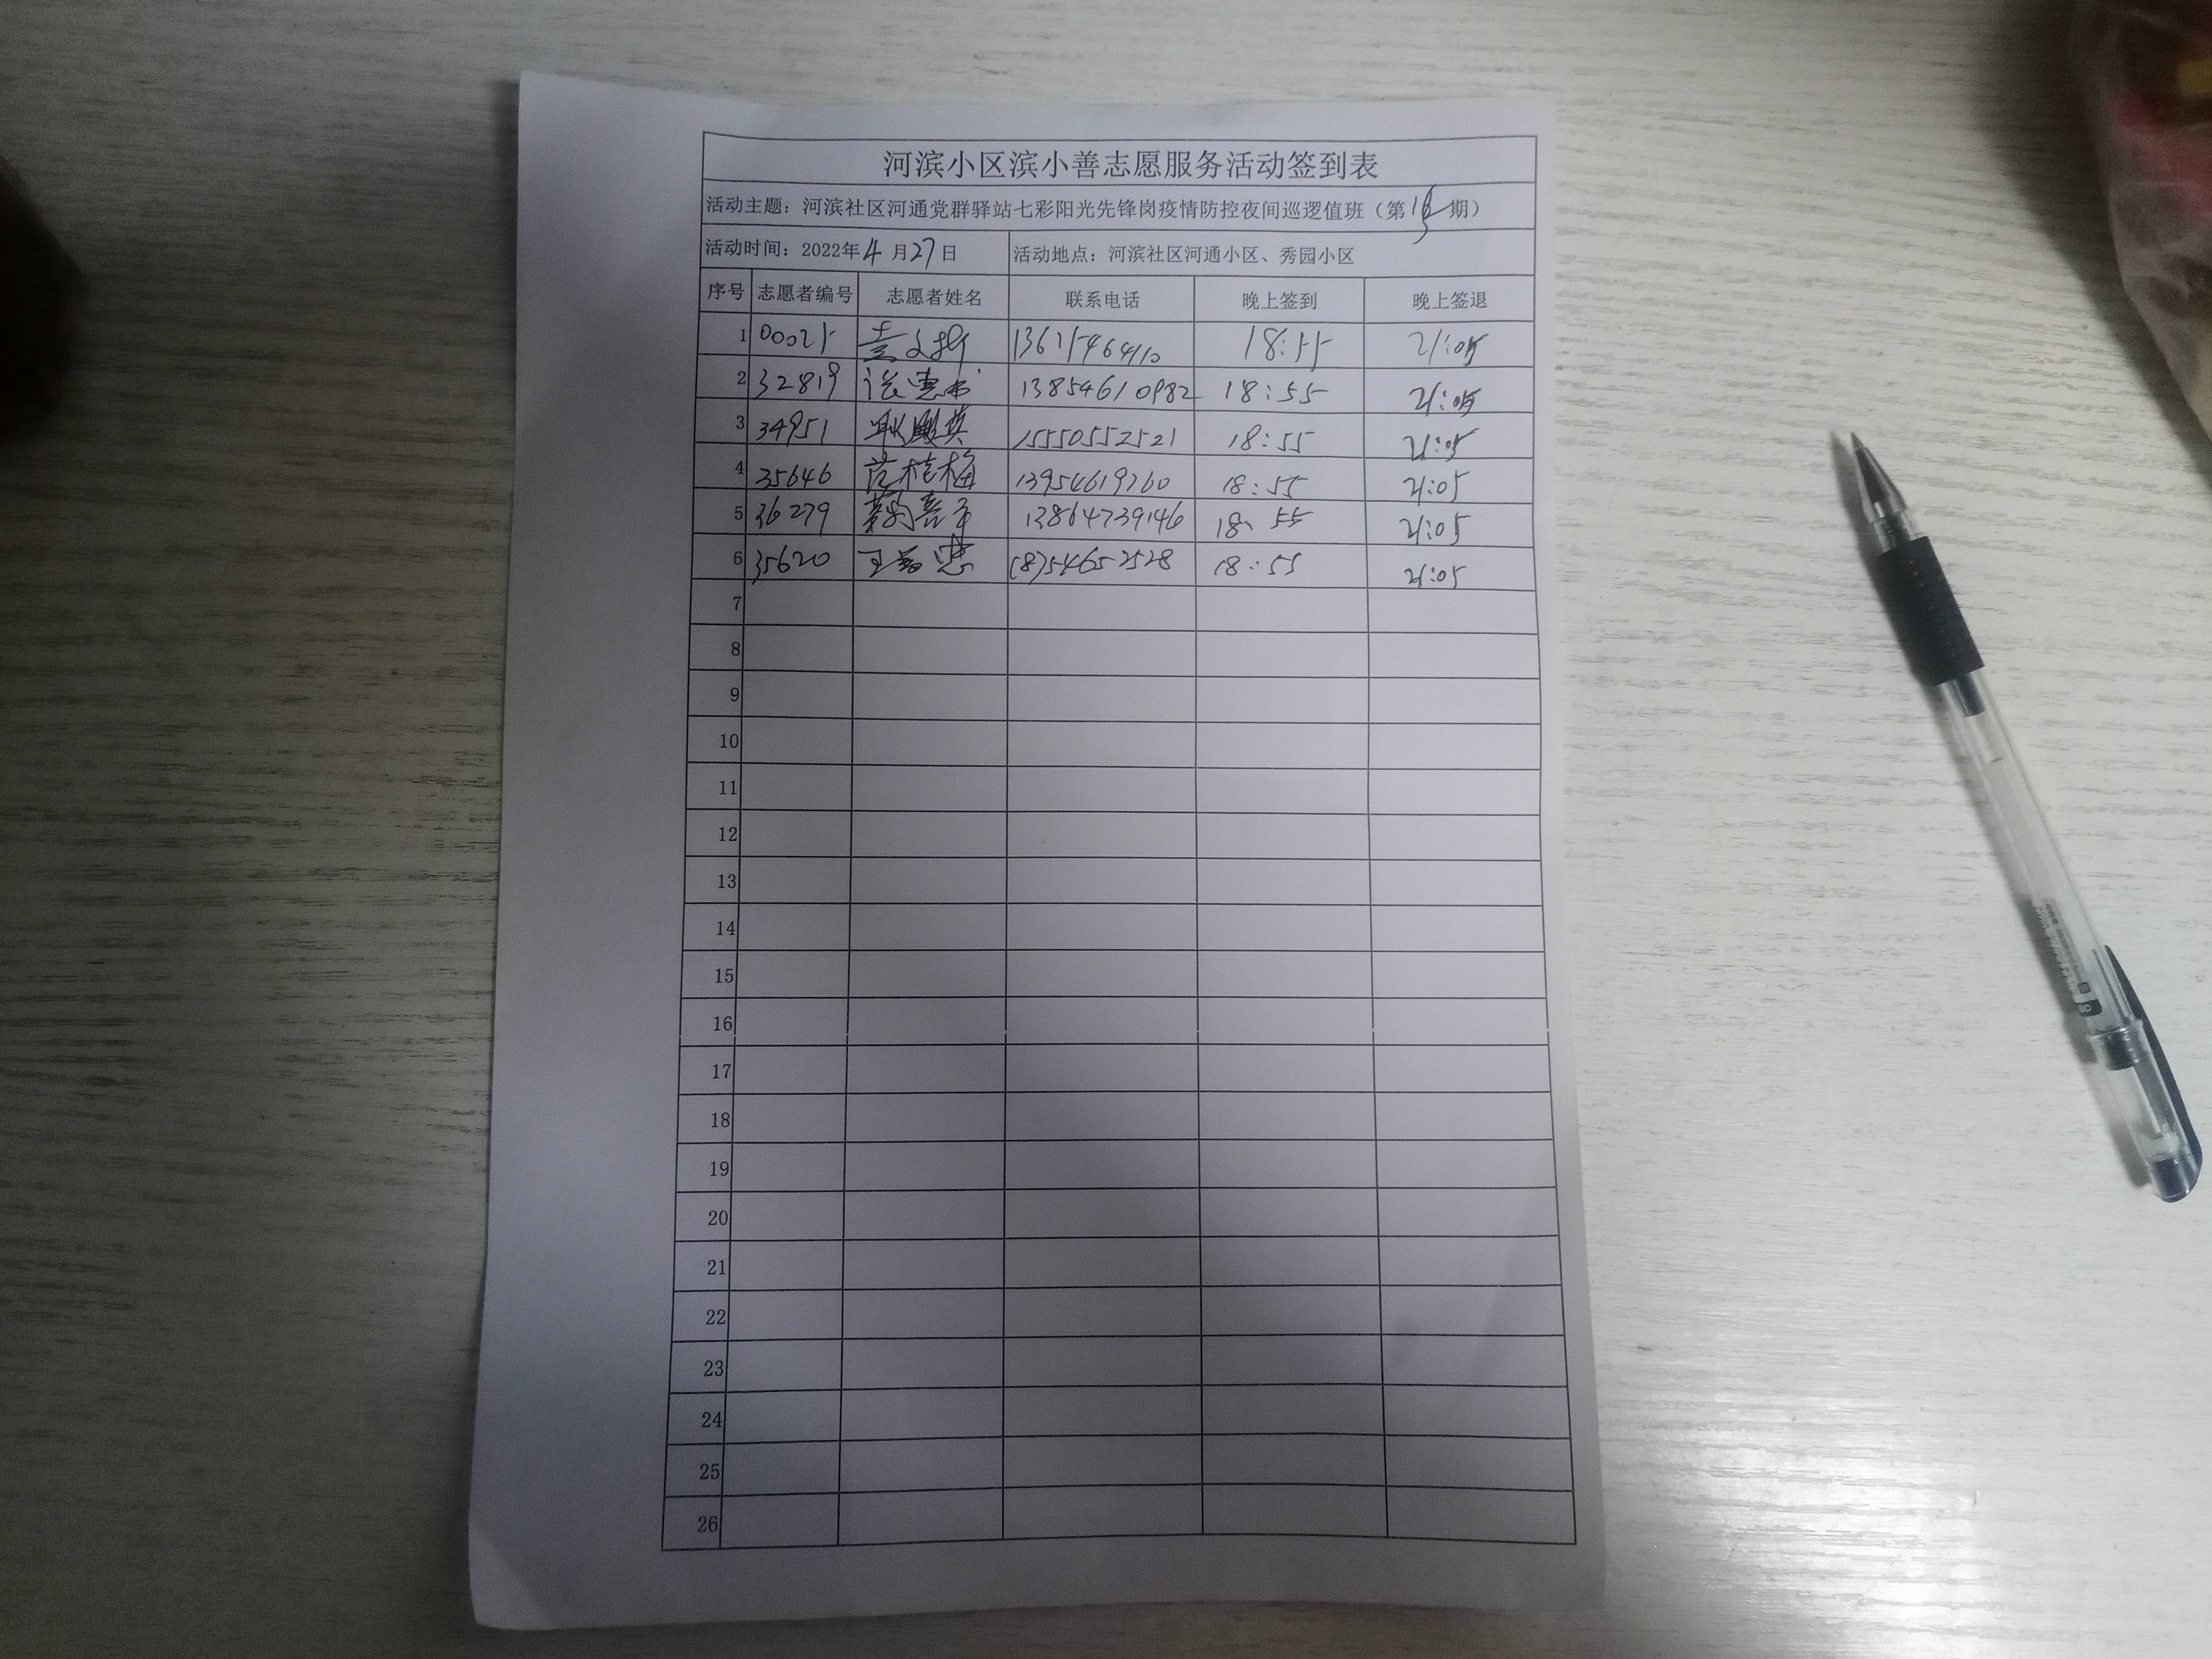 河滨小区滨小善志愿服务活动签到表
活动主题：河滨社区河通党群驿站七彩阳光先锋岗疫情防控夜间巡逻值班（第 期）
活动时间：2022年4月27日 活动地点：河滨社区河通小区、秀园小区
序号 志愿者编号 志愿者姓名 联系电话 晚上签到 晚上签退
1 00025 18:55 21:05
2 32819 13854610982 18:55 21:05
3 34951 15550552521 18:55 21:05
4 35646 范桂梅 13954619760 18:55 21:05
5 36279 13864739146 18:55 21:05
6 35620 18754652528 18:55 21:05
7
8
9
10
11
12
13
14
15
16
17
18
19
20
21
22
23
24
25
26